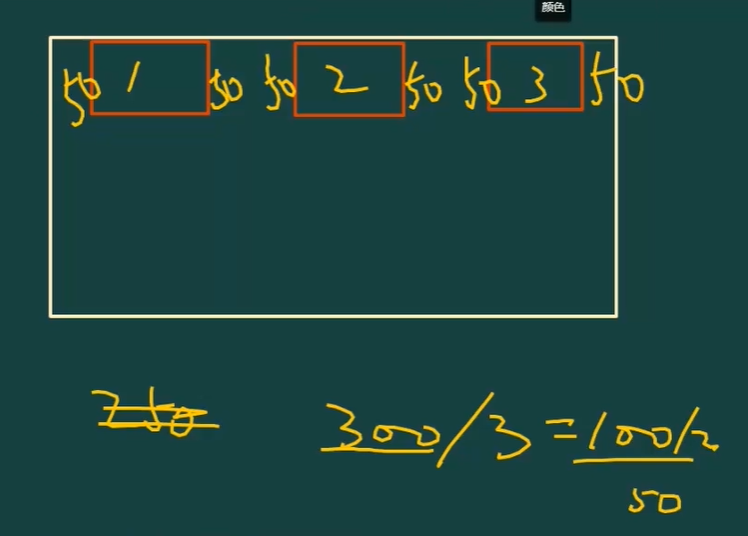 颜色
50 1 50 50 2 50 50 3 50
750
300/3=100/2
50